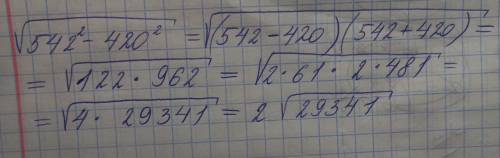 √542² - 420² = √(542 - 420)(542 + 420) =
= √122 · 962 = √2 · 61 · 2 · 481 =
= √4 · 29341 = 2 √29341